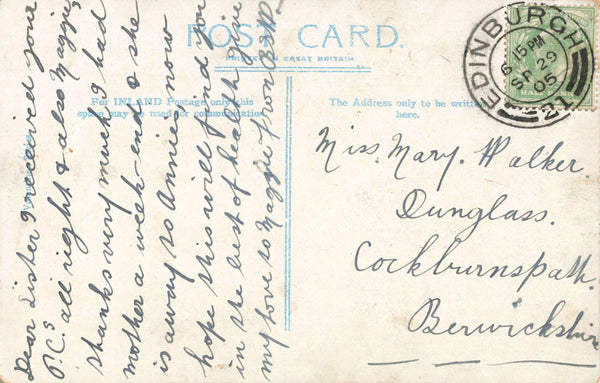 POST CARD.
PRINTED IN GREAT BRITAIN
For INLAND Postage only this
space may be used for communication
The Address only to be written
here.
EDINBURGH
6 15 PM
SP 29
05
21
HALF PENNY
Miss. Mary. Walker.
Dunglass.
Cockburnspath.
Berwickshire
Dear Sister I received your
P.Cs all right & also Maggies
thanks very much, I had
mother a week-end & she
is away to Annie now
hope this will find you
in the best of health, give
my love to Maggie from